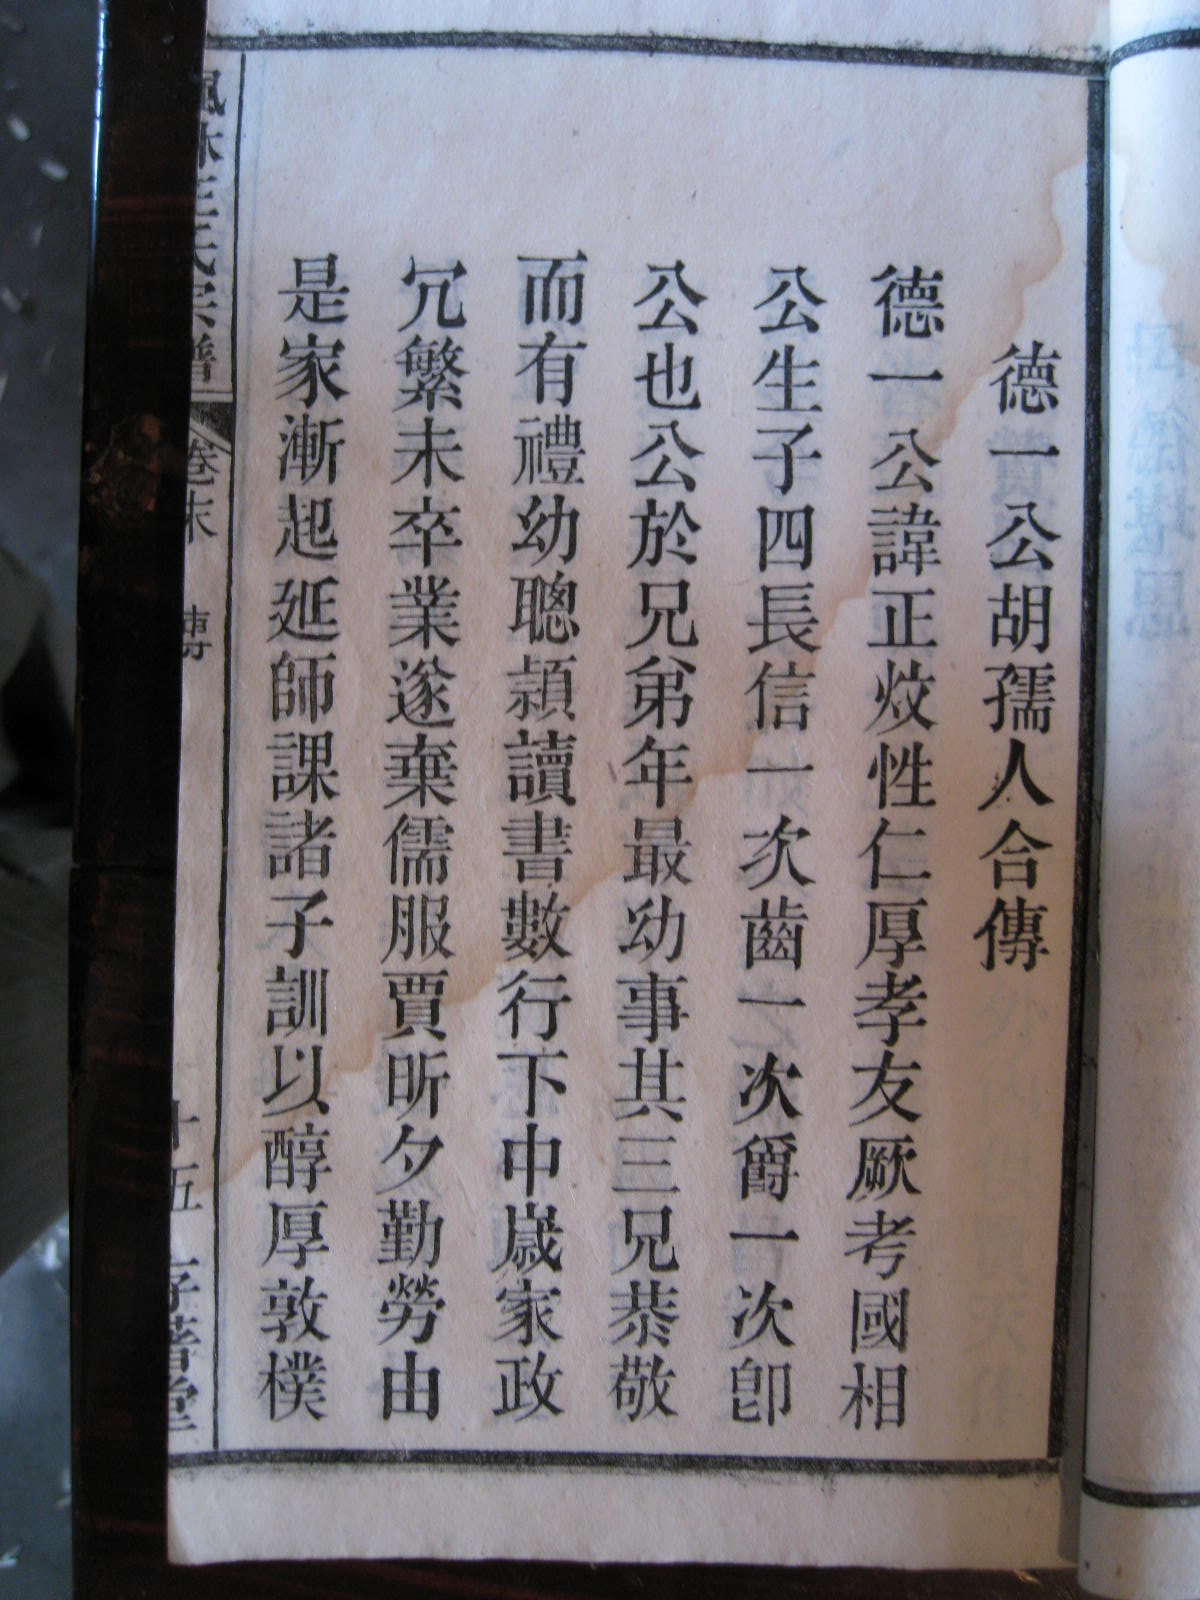 德一公胡孺人合傳
德一公諱正炆性仁厚孝友厥考國相
公生子四長信一次齒一次爵一次卽
公也公於兄弟年最幼事其三兄恭敬
而有禮幼聰穎讀書數行下中歲家政
冗繁未卒業遂棄儒服賈昕夕勤勞由
是家漸起延師課諸子訓以醇厚敦樸
氏宗譜
卷末
傳
十五